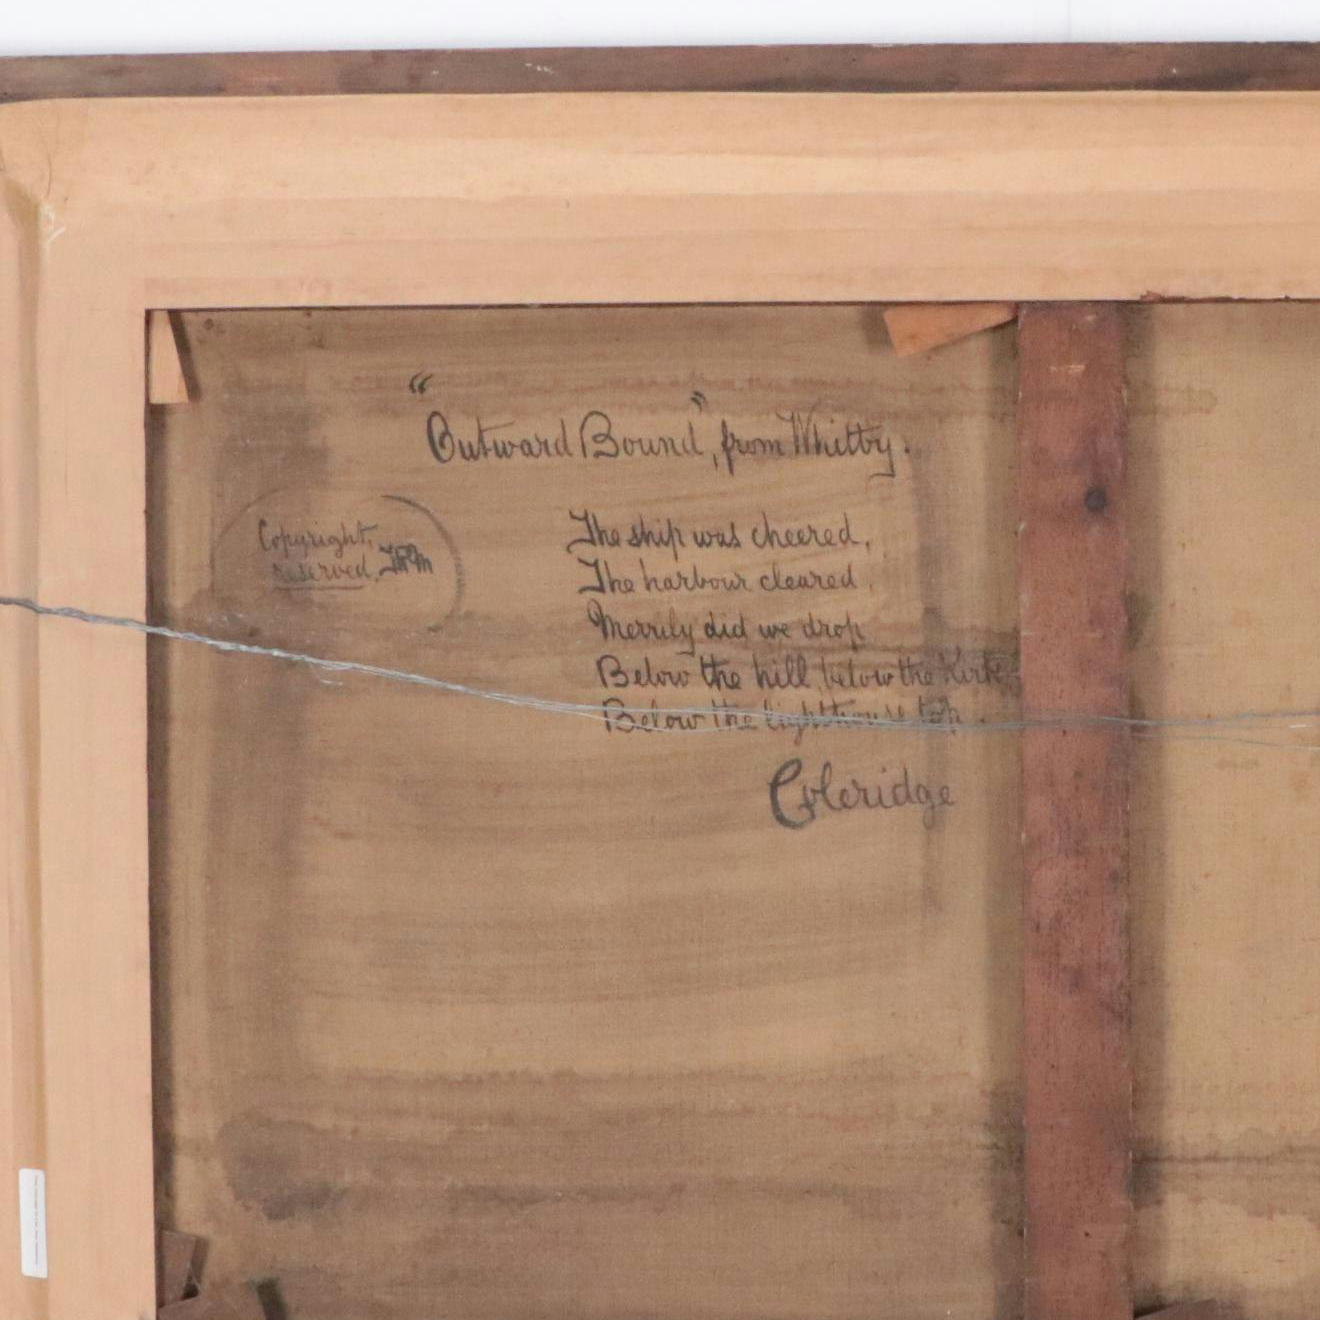 "Outward Bound", from Whitby.
Copyright,
reserved,
The ship was cheered,
The harbour cleared,
Merrily did we drop
Below the hill, below the Kirk
Below the lighthouse top.
Coleridge